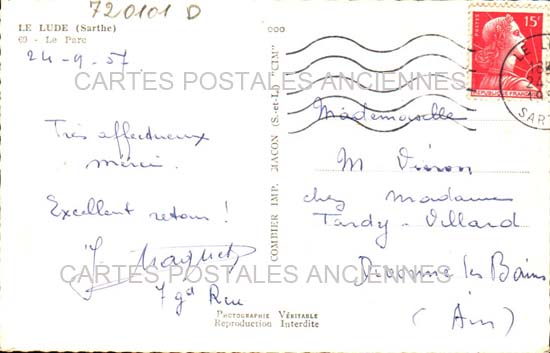 720101 D
LE LUDE (Sarthe)
69 - Le Parc
24-9-57
Très affectueux
merci.
Excellent retour !
7 gd Rue
COMBIER IMP. MACON (S.-et-L.) "CIM"
PHOTOGRAPHIE VÉRITABLE
Reproduction Interdite
15F
REPUBLIQUE FRANÇAISE
LE
SART
Mademoiselle
M
chez Madame
Tardy-Villard
Divonne les Bains
(Ain)
CARTES POSTALES ANCIENNES
CARTES POSTALES ANCIENNES